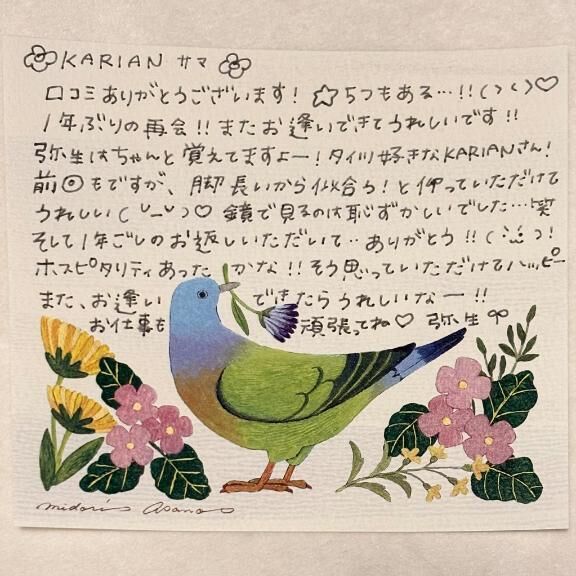 KARIANサマ
口コミありがとうございます! ☆5つもある…!!( > < )♡
1年ぶりの再会!! またお逢いできてうれしいです!!
弥生はちゃんと覚えてますよー! タイツ好きなKARIANさん!
前回もですが、脚長いから似合う!と仰っていただけて
うれしい( ᴗ_ᴗ )♡ 鏡で見るのは恥ずかしいでした…笑
そして1年ごしのお返しいただいて‥ありがとう!!
ホスピタリティあったかな!! そう思っていただけてハッピー
また、お逢いできたらうれしいなー!!
お仕事も頑張ってね♡ 弥生
Midori Asano